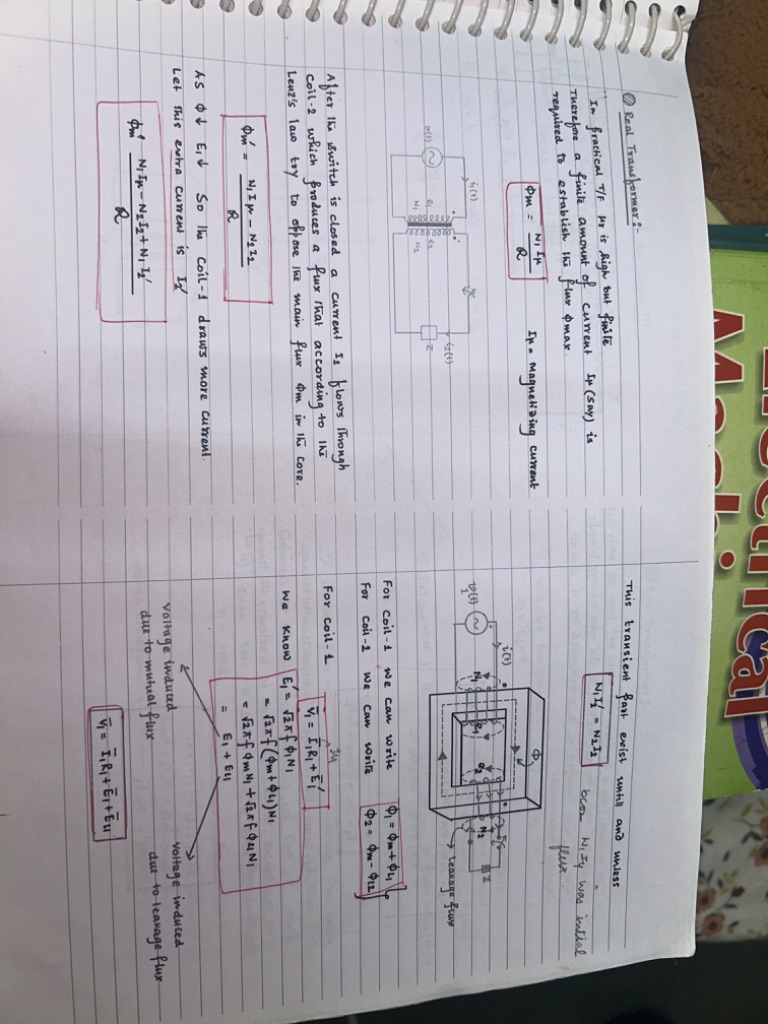 Real Transformer :-
In practical T/F μr is high but finite
Therefore a finite amount of current Iμ (say) is
required to establish the flux Φmax
Φm = N1 Iμ / R
Iμ = Magnetizing current
i1(t)
v(t)
E1
E2
N1
N2
i2(t)
Z
After the switch is closed a current I2 flows through
Coil-2 which produces a flux that according to the
Lenz's law try to oppose the main flux Φm in the core.
Φm' = N1 Iμ - N2 I2 / R
As Φ↓ E1↓ So the Coil-1 draws more current
Let this extra current is I2'
Φm'' N1 Iμ - N2 I2 + N1 I2' / R
This transient part exist until and unless
N1 I2' = N2 I2
N1 Iμ was initial
flux
v(t)
i(t)
N1
N2
Z
Leakage flux
For coil-1 we can write Φ1 = Φm + ΦL1
For coil-2 we can write Φ2 = Φm - ΦL2
For coil-1
V̄1 = Ī1 R1 + Ē1'
We know E1' = √2 π f Φ1 N1
= √2 π f (Φm + ΦL1) N1
= √2 π f Φm N1 + √2 π f ΦL1 N1
= E1 + EL1
Voltage induced
due to mutual flux
Voltage induced
due to leakage flux
V̄1 = Ī1 R1 + Ē1 + ĒL1
Electrical
Machi